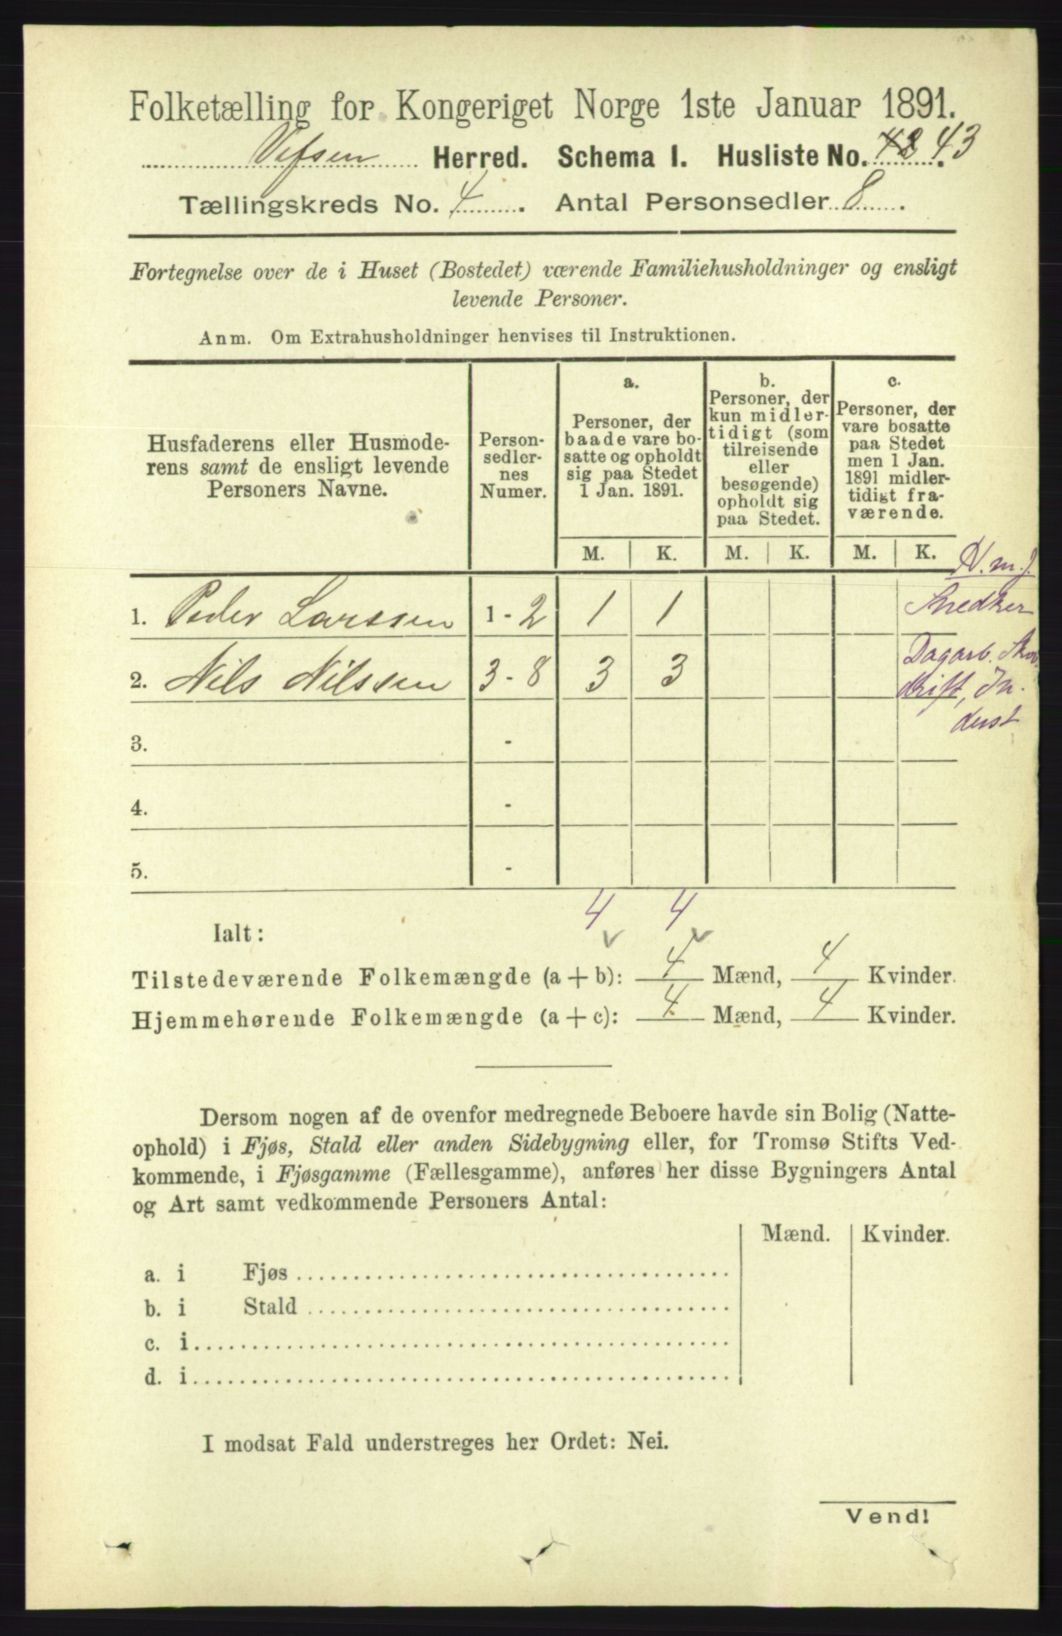 Folketælling for Kongeriget Norge 1ste Januar 1891.
Vefsen Herred. Schema I. Husliste No. 42 43
Tællingskreds No. 4. Antal Personsedler 8.
Fortegnelse over de i Huset (Bostedet) værende Familiehusholdninger og ensligt
levende Personer.
Anm. Om Extrahusholdninger henvises til Instruktionen.
Husfaderens eller Husmode-
rens samt de ensligt levende
Personers Navne.
Person-
sedler-
nes
Numer.
a.
Personer, der
baade vare bo-
satte og opholdt
sig paa Stedet
1 Jan. 1891.
b.
Personer, der
kun midler-
tidigt (som
tilreisende
eller
besøgende)
opholdt sig
paa Stedet.
c.
Personer, der
vare bosatte
paa Stedet
men 1 Jan.
1891 midler-
tidigt fra-
værende.
M. K. M. K. M. K.
N. m. j.
1. Peder Larssen 1 - 2 1 1 Snedker
2. Nils Nilssen 3 - 8 3 3 Dagarb.
drift, In-
dust
3. -
4. -
5. -
4 4
Ialt:
Tilstedeværende Folkemængde (a + b): 4 Mænd, 4 Kvinder.
Hjemmehørende Folkemængde (a + c): 4 Mænd, 4 Kvinder.
Dersom nogen af de ovenfor medregnede Beboere havde sin Bolig (Natte-
ophold) i Fjøs, Stald eller anden Sidebygning eller, for Tromsø Stifts Ved-
kommende, i Fjøsgamme (Fællesgamme), anføres her disse Bygningers Antal
og Art samt vedkommende Personers Antal:
Mænd. Kvinder.
a. i Fjøs
b. i Stald
c. i
d. i
I modsat Fald understreges her Ordet: Nei.
Vend!